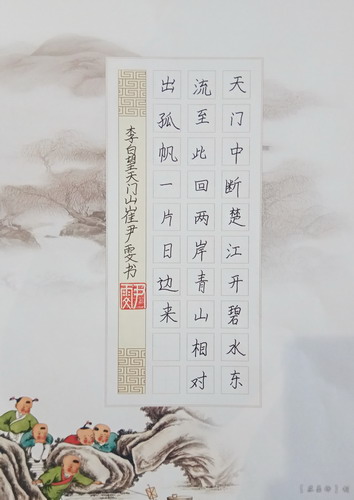 天门中断楚江开碧水东
流至此回两岸青山相对
出孤帆一片日边来
李白望天门山崔尹雯书